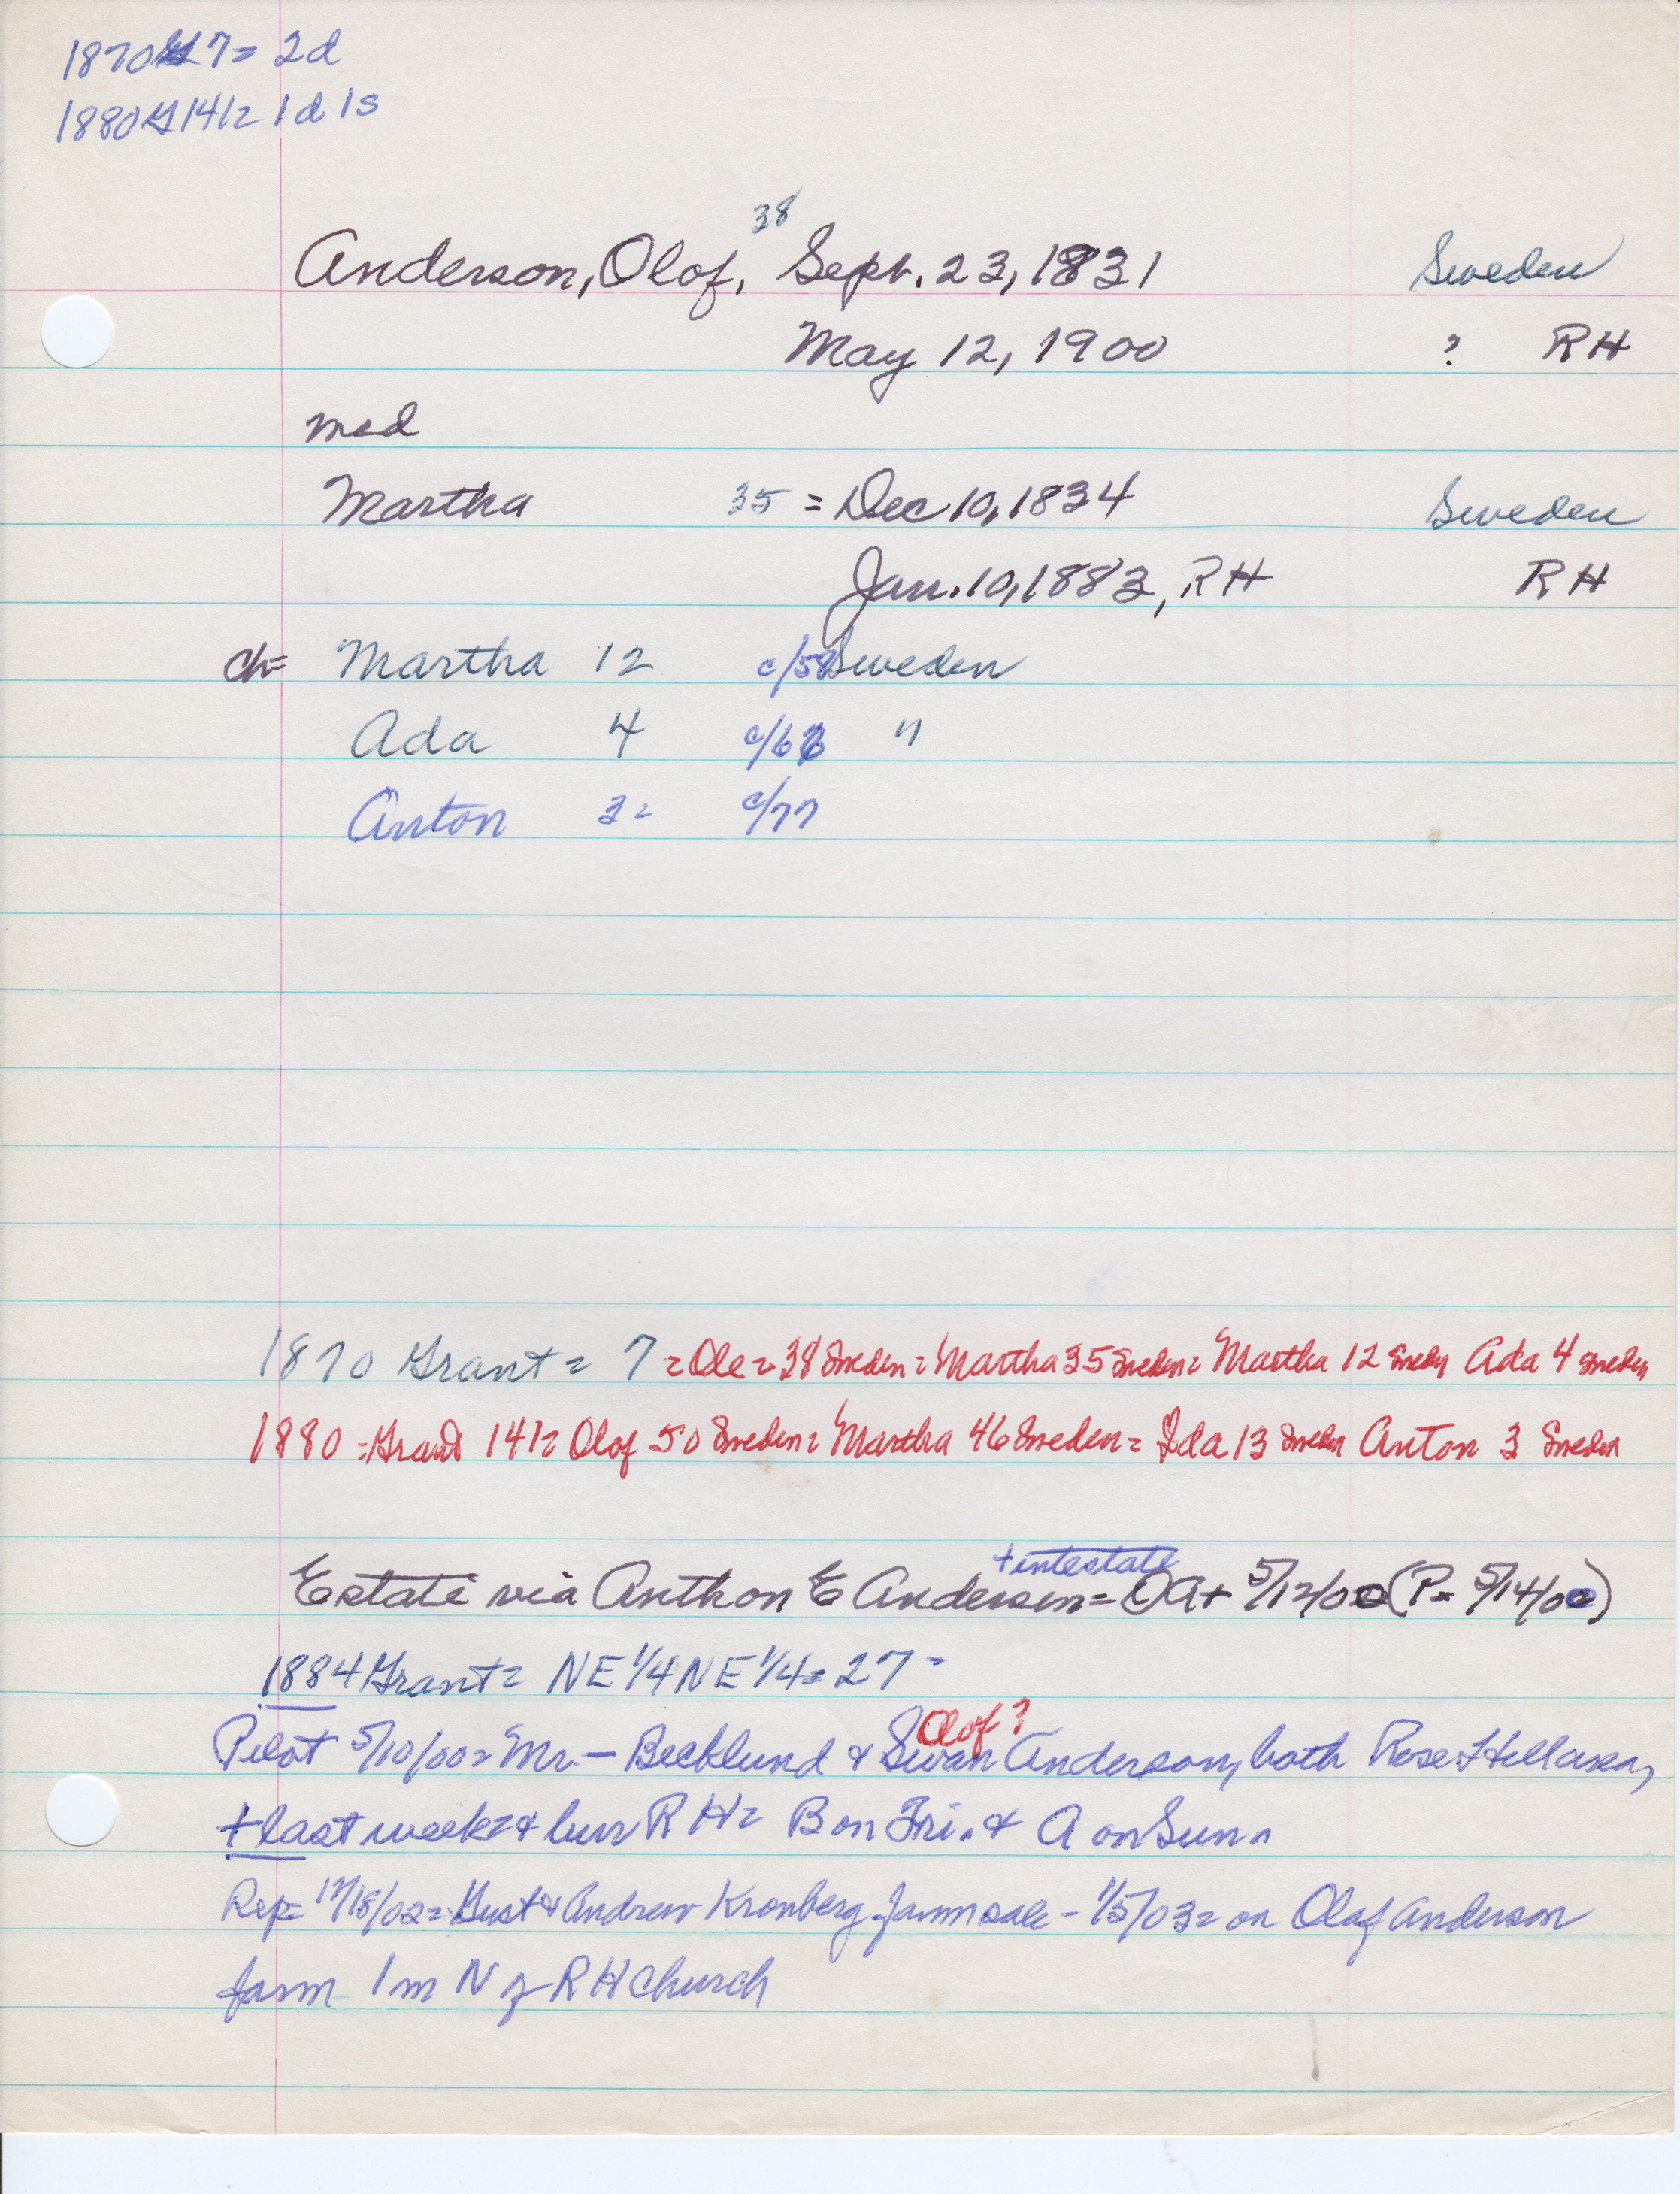 1870 G 7= 2d
1880 G 141= 1d 1s
38
Anderson, Olof, Sept. 23, 1831 Sweden
May 12, 1900 ? RH
med
Martha 35 = Dec 10, 1834 Sweden
Jan. 10, 1883, RH RH
Ch= Martha 12 c/58 Sweden
Ada 4 c/66 "
Anton 3= c/77
1870 Grant= 7 =Ole=38 Sweden=Martha 35 Sweden= Martha 12 Sweden Ada 4 Sweden
1880 =Grant 141= Olof 50 Sweden= Martha 46 Sweden= Ida 13 Sweden Anton 3 Sweden
+intestate
Estate via Anthon E Anderson= OA+ 5/12/00 (P= 5/14/00)
1884 Grant= NE 1/4 NE 1/4= 27-
Olof?
Pilot 5/10/00= Mr. — Becklund & Swan Anderson, both Rose Hill area,
+last week= & bur RH= B on Fri. & A on Sun.
Rep= 12/18/02= Gust & Andrew Kronberg farm sale - 1/5/03= on Olaf Anderson
farm 1 m N of RH Church